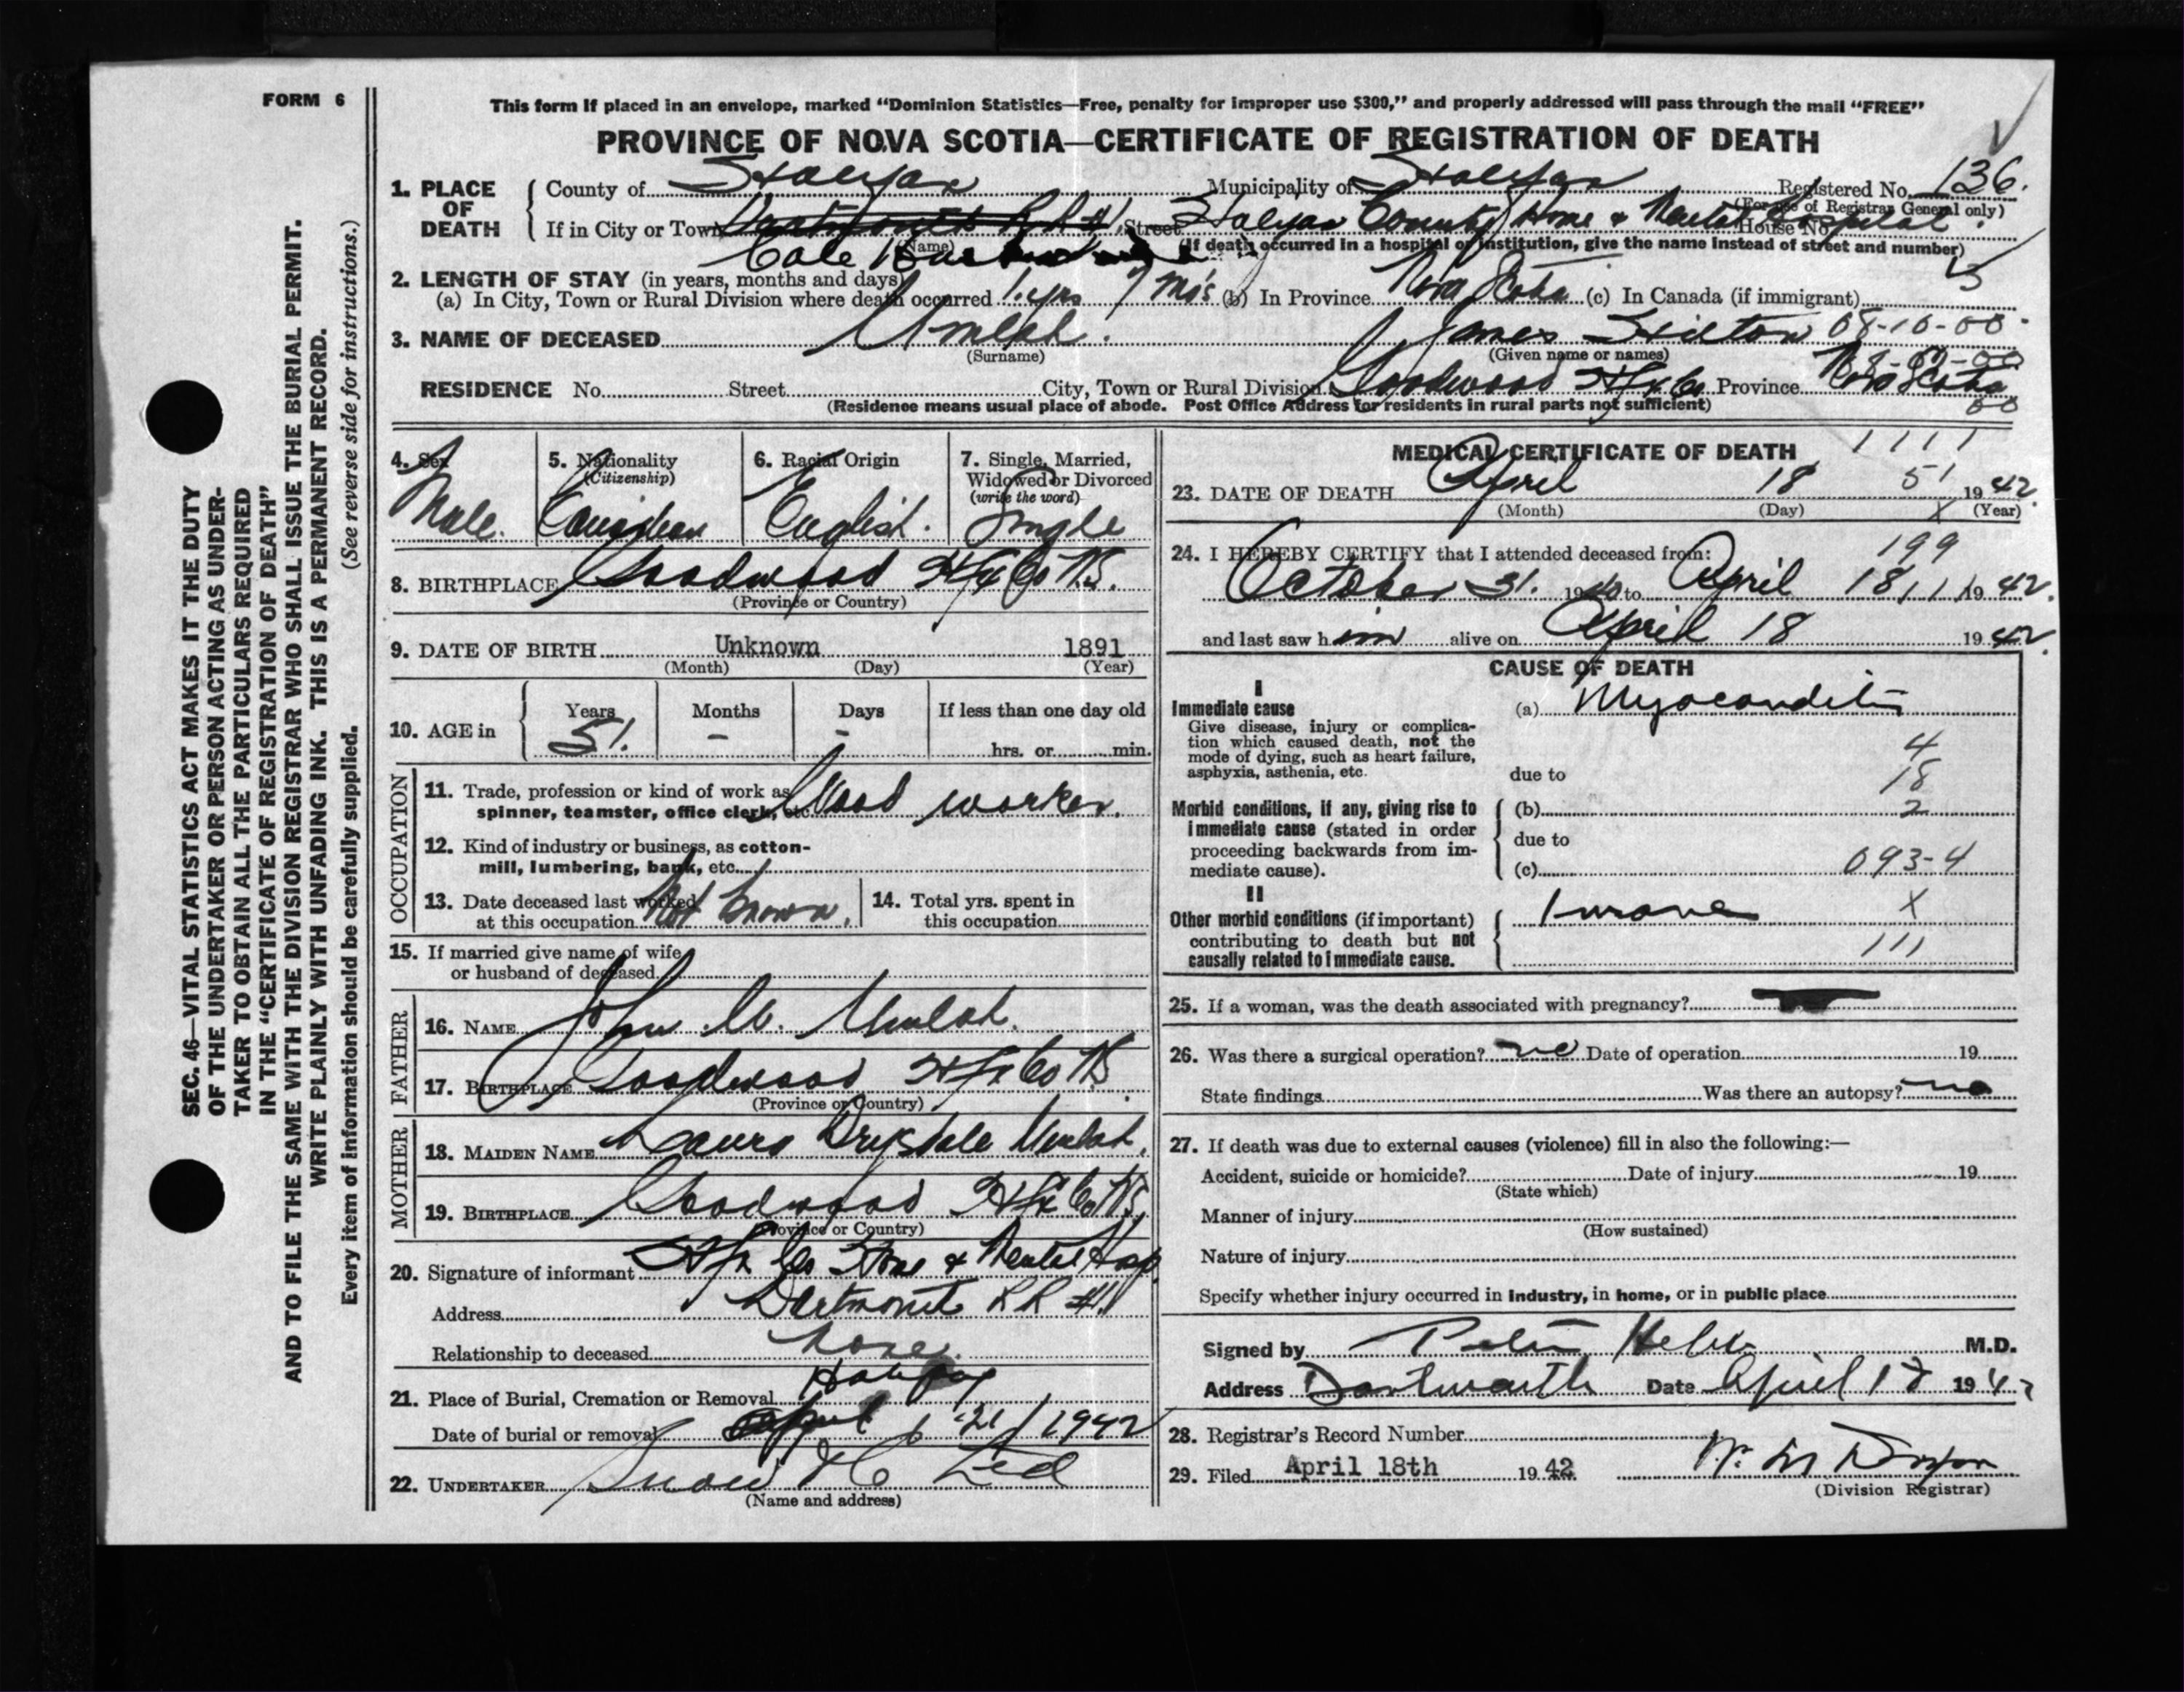 FORM 6
This form if placed in an envelope, marked “Dominion Statistics—Free, penalty for improper use $300,” and properly addressed will pass through the mail “FREE”
PROVINCE OF NOVA SCOTIA—CERTIFICATE OF REGISTRATION OF DEATH
1. PLACE OF DEATH County of Halifax Municipality of Halifax Registered No. 136.
(For use of Registrar General only)
If in City or Town Dartmouth R R #1 Street Halifax County Home & Mental Hospital. House No.
(Name) (If death occurred in a hospital or institution, give the name instead of street and number)
Cole
2. LENGTH OF STAY (in years, months and days)
(a) In City, Town or Rural Division where death occurred 1. yrs 7 mo's (b) In Province Nova Scotia (c) In Canada (if immigrant)
3. NAME OF DECEASED Umlah. James Hilton 08-10-00
(Surname) (Given name or names)
RESIDENCE No. Street City, Town or Rural Division Goodwood Hfx Co Province Nova Scotia
00
(Residence means usual place of abode. Post Office Address for residents in rural parts not sufficient)
4. Sex Male.
5. Nationality (Citizenship) Canadian
6. Racial Origin English.
7. Single, Married, Widowed or Divorced (write the word) Single
8. BIRTHPLACE Goodwood Hfx Co N.S.
(Province or Country)
9. DATE OF BIRTH Unknown 1891
(Month) (Day) (Year)
10. AGE in Years 51. Months - Days - If less than one day old
hrs. or min.
OCCUPATION
11. Trade, profession or kind of work as spinner, teamster, office clerk, etc. Wood worker.
12. Kind of industry or business, as cotton-mill, lumbering, bank, etc.
13. Date deceased last worked at this occupation Not known.
14. Total yrs. spent in this occupation
15. If married give name of wife or husband of deceased
FATHER
16. NAME John W. Umlah.
17. BIRTHPLACE Goodwood Hfx Co NS.
(Province or Country)
MOTHER
18. MAIDEN NAME Laura Drysdale Umlah.
19. BIRTHPLACE Goodwood Hfx Co N.S.
(Province or Country)
20. Signature of informant Hfx Co Home & Mental Hosp.
Address Dartmouth R R #1
Relationship to deceased None.
21. Place of Burial, Cremation or Removal Halifax
Date of burial or removal April 21/1942
22. UNDERTAKER Snow & Co Ltd
(Name and address)
MEDICAL CERTIFICATE OF DEATH 1111
23. DATE OF DEATH April 18 51 1942.
(Month) (Day) X (Year)
24. I HEREBY CERTIFY that I attended deceased from: 199
October 31. 1940 to April 18, 1942.
and last saw him alive on April 18 1942.
CAUSE OF DEATH
I
Immediate cause (a) Myocarditis
Give disease, injury or complication which caused death, not the mode of dying, such as heart failure, asphyxia, asthenia, etc.
4
18
due to
Morbid conditions, if any, giving rise to immediate cause (stated in order proceeding backwards from immediate cause).
(b) 2
due to
(c) 093-4
II
Other morbid conditions (if important) contributing to death but not causally related to immediate cause.
Insane X
111
25. If a woman, was the death associated with pregnancy?
26. Was there a surgical operation? no Date of operation 19
State findings Was there an autopsy? no
27. If death was due to external causes (violence) fill in also the following:—
Accident, suicide or homicide? Date of injury 19
(State which)
Manner of injury
(How sustained)
Nature of injury
Specify whether injury occurred in industry, in home, or in public place
Signed by M.D.
Address Dartmouth Date April 18 1942
28. Registrar's Record Number
29. Filed April 18th 1942
(Division Registrar)
SEC. 46—VITAL STATISTICS ACT MAKES IT THE DUTY
OF THE UNDERTAKER OR PERSON ACTING AS UNDER-
TAKER TO OBTAIN ALL THE PARTICULARS REQUIRED
IN THE “CERTIFICATE OF REGISTRATION OF DEATH”
AND TO FILE THE SAME WITH THE DIVISION REGISTRAR WHO SHALL ISSUE THE BURIAL PERMIT.
WRITE PLAINLY WITH UNFADING INK. THIS IS A PERMANENT RECORD.
Every item of information should be carefully supplied. (See reverse side for instructions.)